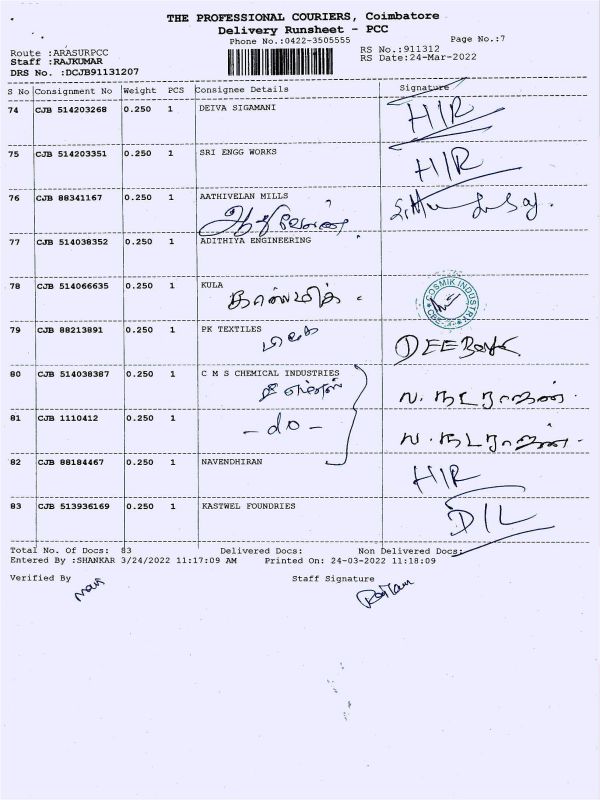 THE PROFESSIONAL COURIERS, Coimbatore
Delivery Runsheet - PCC
Phone No.:0422-3505555
Page No.:7
Route :ARASURPCC
RS No.:911312
Staff :RAJKUMAR
RS Date:24-Mar-2022
DRS No. :DCJB91131207
S No Consignment No Weight PCS Consignee Details Signature
74 CJB 514203268 0.250 1 DEIVA SIGAMANI H/R
75 CJB 514203351 0.250 1 SRI ENGG WORKS H/R
76 CJB 88341167 0.250 1 AATHIVELAN MILLS
77 CJB 514038352 0.250 1 ADITHIYA ENGINEERING
78 CJB 514066635 0.250 1 KULA
காஸ்மிக்
COSMIK INDUSTRY
79 CJB 88213891 0.250 1 PK TEXTILES
80 CJB 514038387 0.250 1 C M S CHEMICAL INDUSTRIES
ந. நடராஜன்.
81 CJB 1110412 0.250 1 - do -
ந. நடராஜன்.
82 CJB 88184467 0.250 1 NAVENDHIRAN H/R
83 CJB 513936169 0.250 1 KASTWEL FOUNDRIES D/L
Total No. Of Docs: 83 Delivered Docs: Non Delivered Docs:
Entered By :SHANKAR 3/24/2022 11:17:09 AM Printed On: 24-03-2022 11:18:09
Verified By Staff Signature